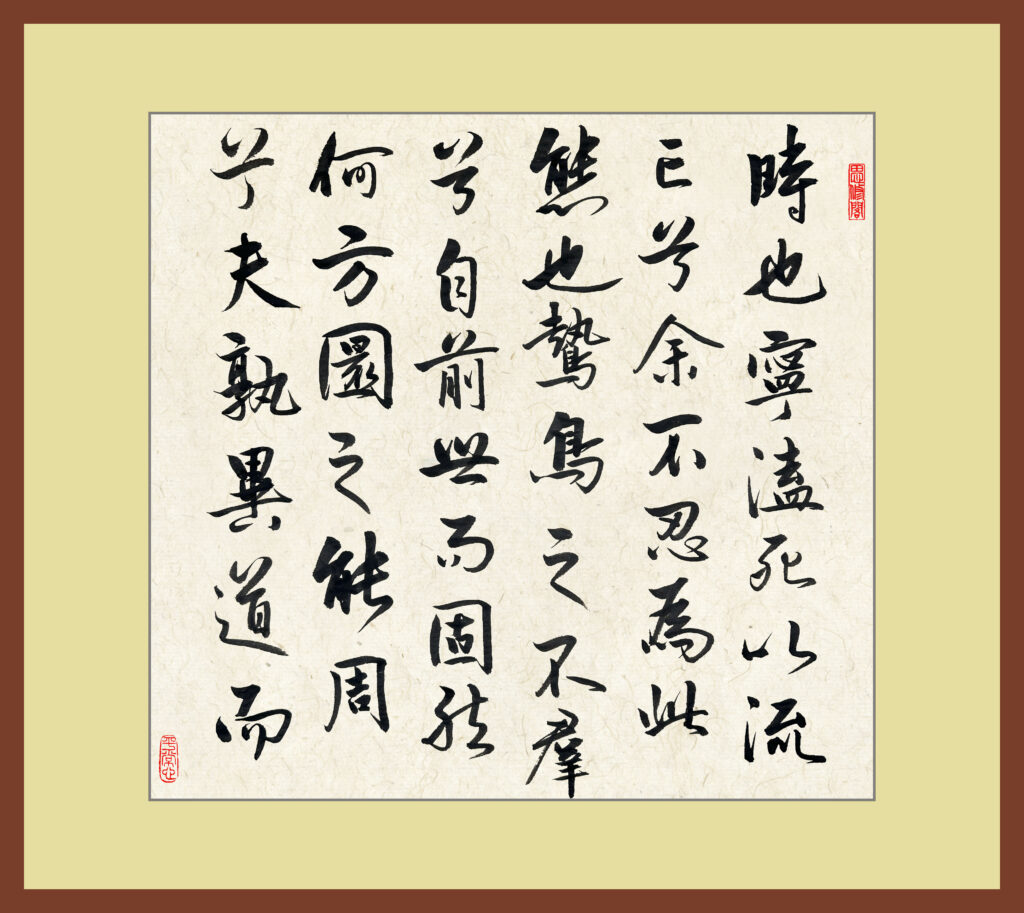 思修閣
時也寧溘死以流
亡兮余不忍為此
態也鷙鳥之不羣
兮自前世而固然
何方圜之能周
兮夫孰異道而
平常心